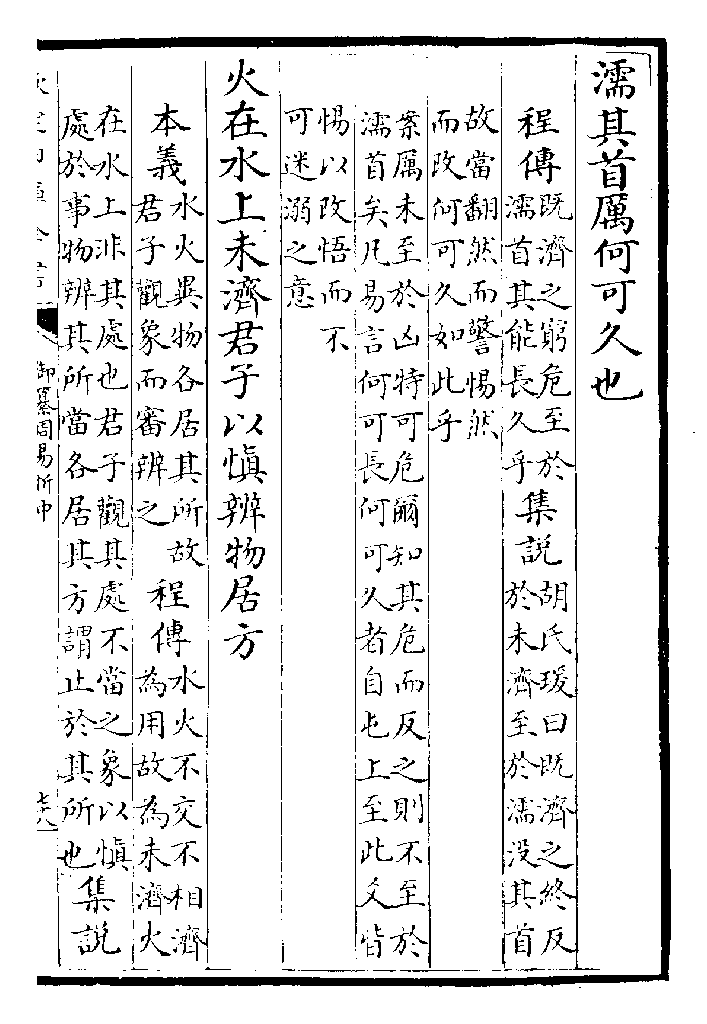 濡其首厲何可久也
程傳既濟之窮危至於
濡首其能長久乎集說胡氏瑗曰既濟之終反
於未濟至於濡没其首
故當翻然而警惕然
而改何可久如此乎
案厲未至於凶特可危爾知其危而反之則不至於
濡首矣凡易言何可長何可久者自屯上至此爻皆
惕以改悟而不
可迷溺之意
火在水上未濟君子以慎辨物居方
本義水火異物各居其所故
君子觀象而審辨之程傳水火不交不相濟
為用故為未濟火
在水上非其處也君子觀其處不當之象以慎
處於事物辨其所當各居其方謂止於其所也集說
御纂周易折中